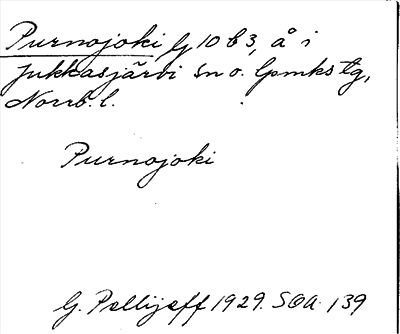 Purnojoki, G 10 b 3, å i
Jukkasjärvi sn o. lpmks tg,
Norrb. l.
Purnojoki
G. Pellijeff 1929. SOA. 139